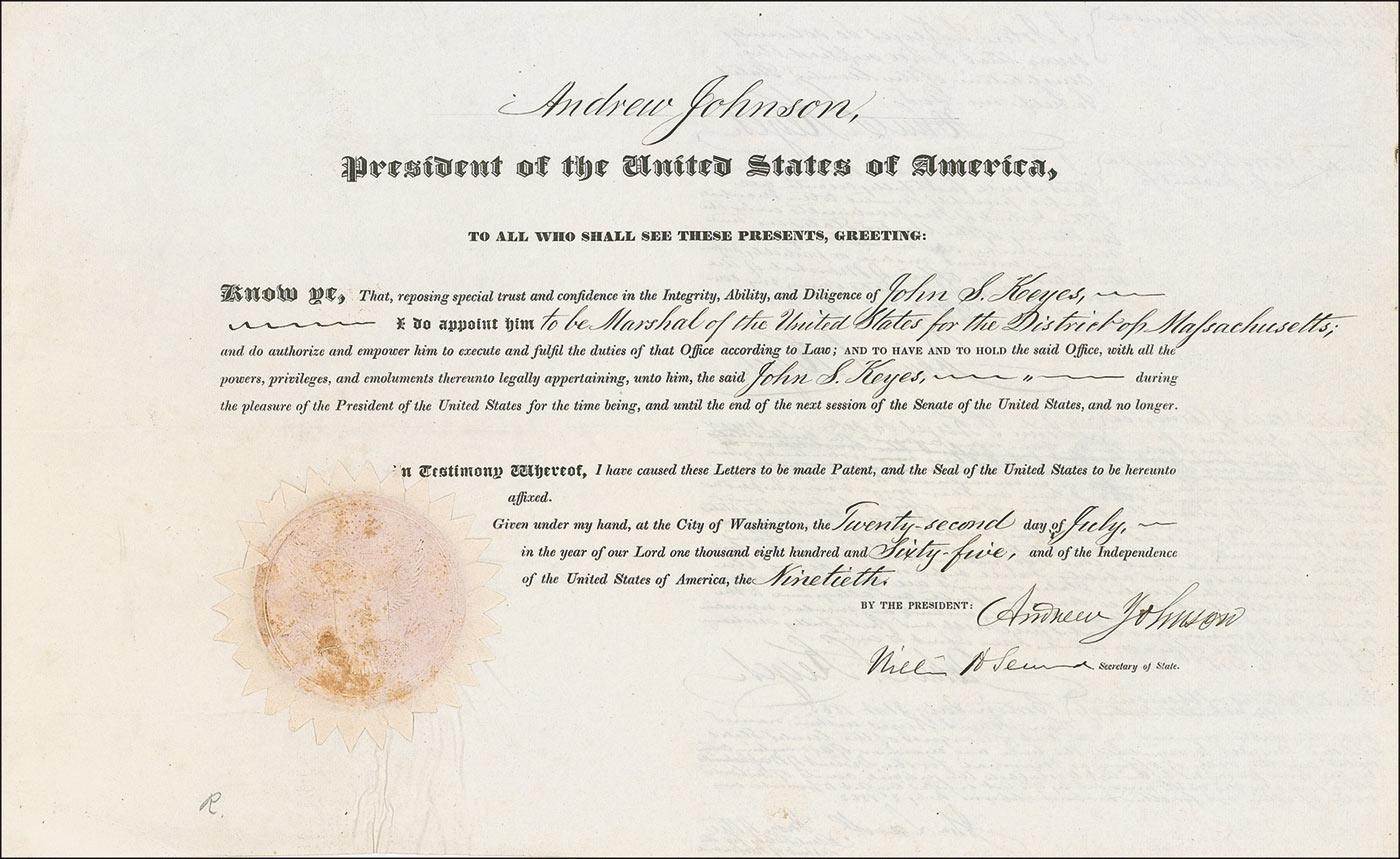 Andrew Johnson,
President of the United States of America,
TO ALL WHO SHALL SEE THESE PRESENTS, GREETING:
Know ye, That, reposing special trust and confidence in the Integrity, Ability, and Diligence of John S. Keyes,
I do appoint him to be Marshal of the United States for the District of Massachusetts;
and do authorize and empower him to execute and fulfil the duties of that Office according to Law; AND TO HAVE AND TO HOLD the said Office, with all the
powers, privileges, and emoluments thereunto legally appertaining, unto him, the said John S. Keyes, — " — during
the pleasure of the President of the United States for the time being, and until the end of the next session of the Senate of the United States, and no longer.
n Testimony Whereof, I have caused these Letters to be made Patent, and the Seal of the United States to be hereunto
affixed.
Given under my hand, at the City of Washington, the Twenty-second day of July,
in the year of our Lord one thousand eight hundred and Sixty-five, and of the Independence
of the United States of America, the Ninetieth.
BY THE PRESIDENT: Andrew Johnson
William H Seward Secretary of State.
R.